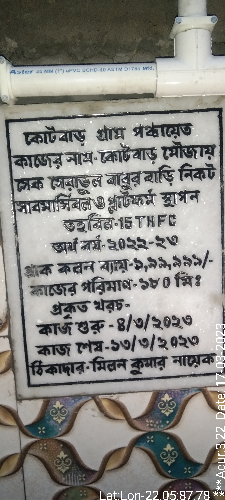 Aster
কোটবাড় গ্রাম পঞ্চায়েত
কাজের নাম-কোটবাড় মৌজায়
সেক সেরাজুল বাবুর বাড়ি নিকট
সাবমার্সিবল ও প্লাটফর্ম স্থাপন
তহবিল-15THFC
অর্থ বর্ষ-২০২২-২৩
প্রাক কলন ব্যায়-১,৯৯,৯৯৯/-
কাজের পরিমাণ-১৮০ মিঃ
প্রকৃত খরচ-
কাজ শুরু-৪/৩/২০২৩
কাজ শেষ-১৩/৩/২০২৩
ঠিকাদার-মিলন কুমার নায়েক
Lat:Lon-22.05:87.78
***Acur:3.22 Date:17-03-2023